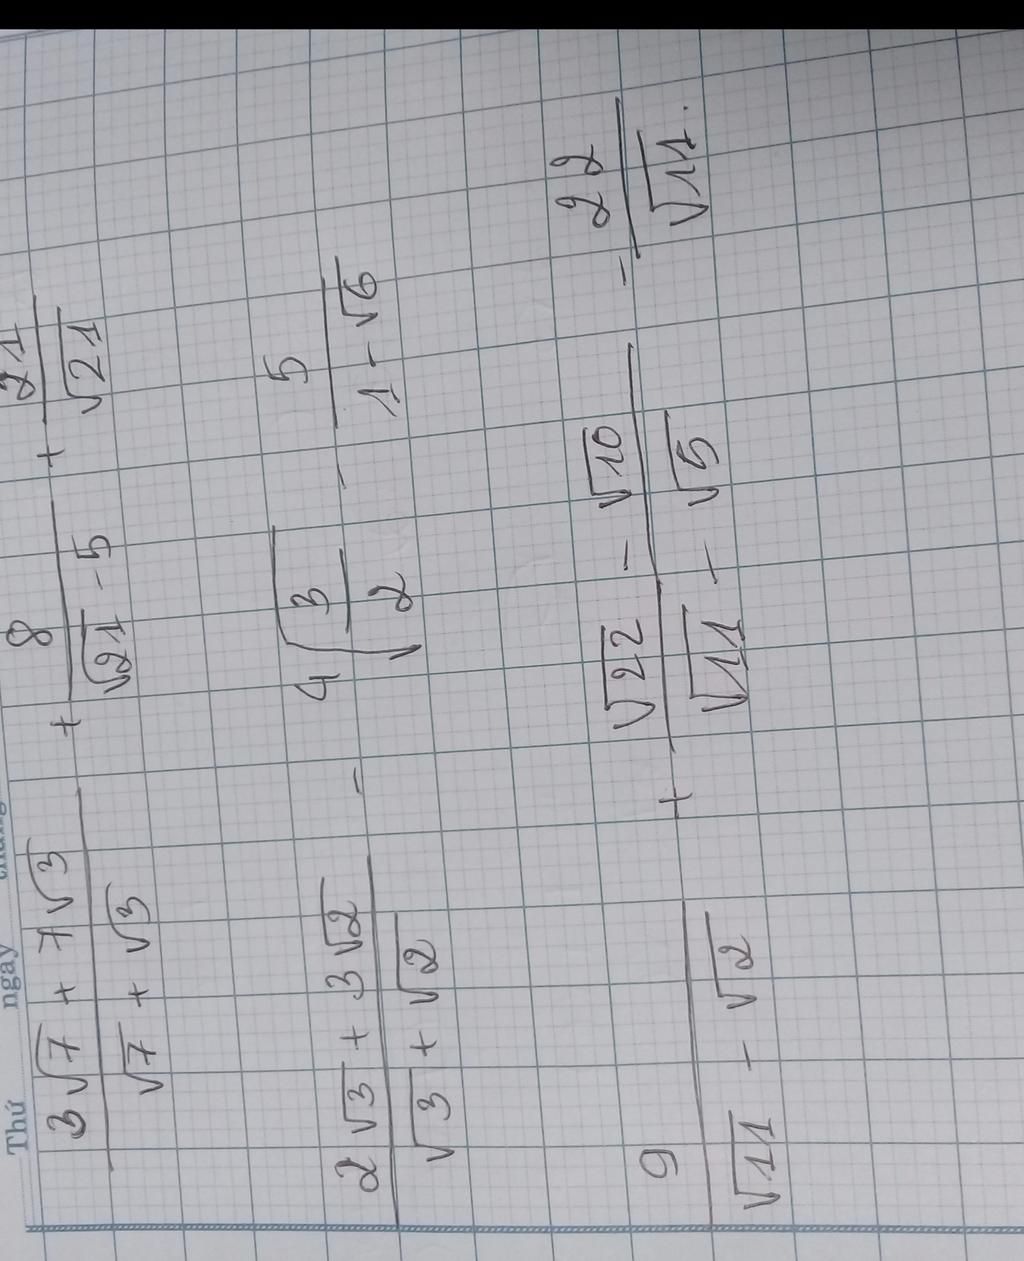 Thứ ngày tháng
(3√7 + 7√3)/(√7 + √3) + 8/(√21 - 5) + 21/√21
(2√3 + 3√2)/(√3 + √2) - 4√(3/2) - 5/(1 - √6)
9/(√11 - √2) + (√22 - √10)/(√11 - √5) - 22/√11.